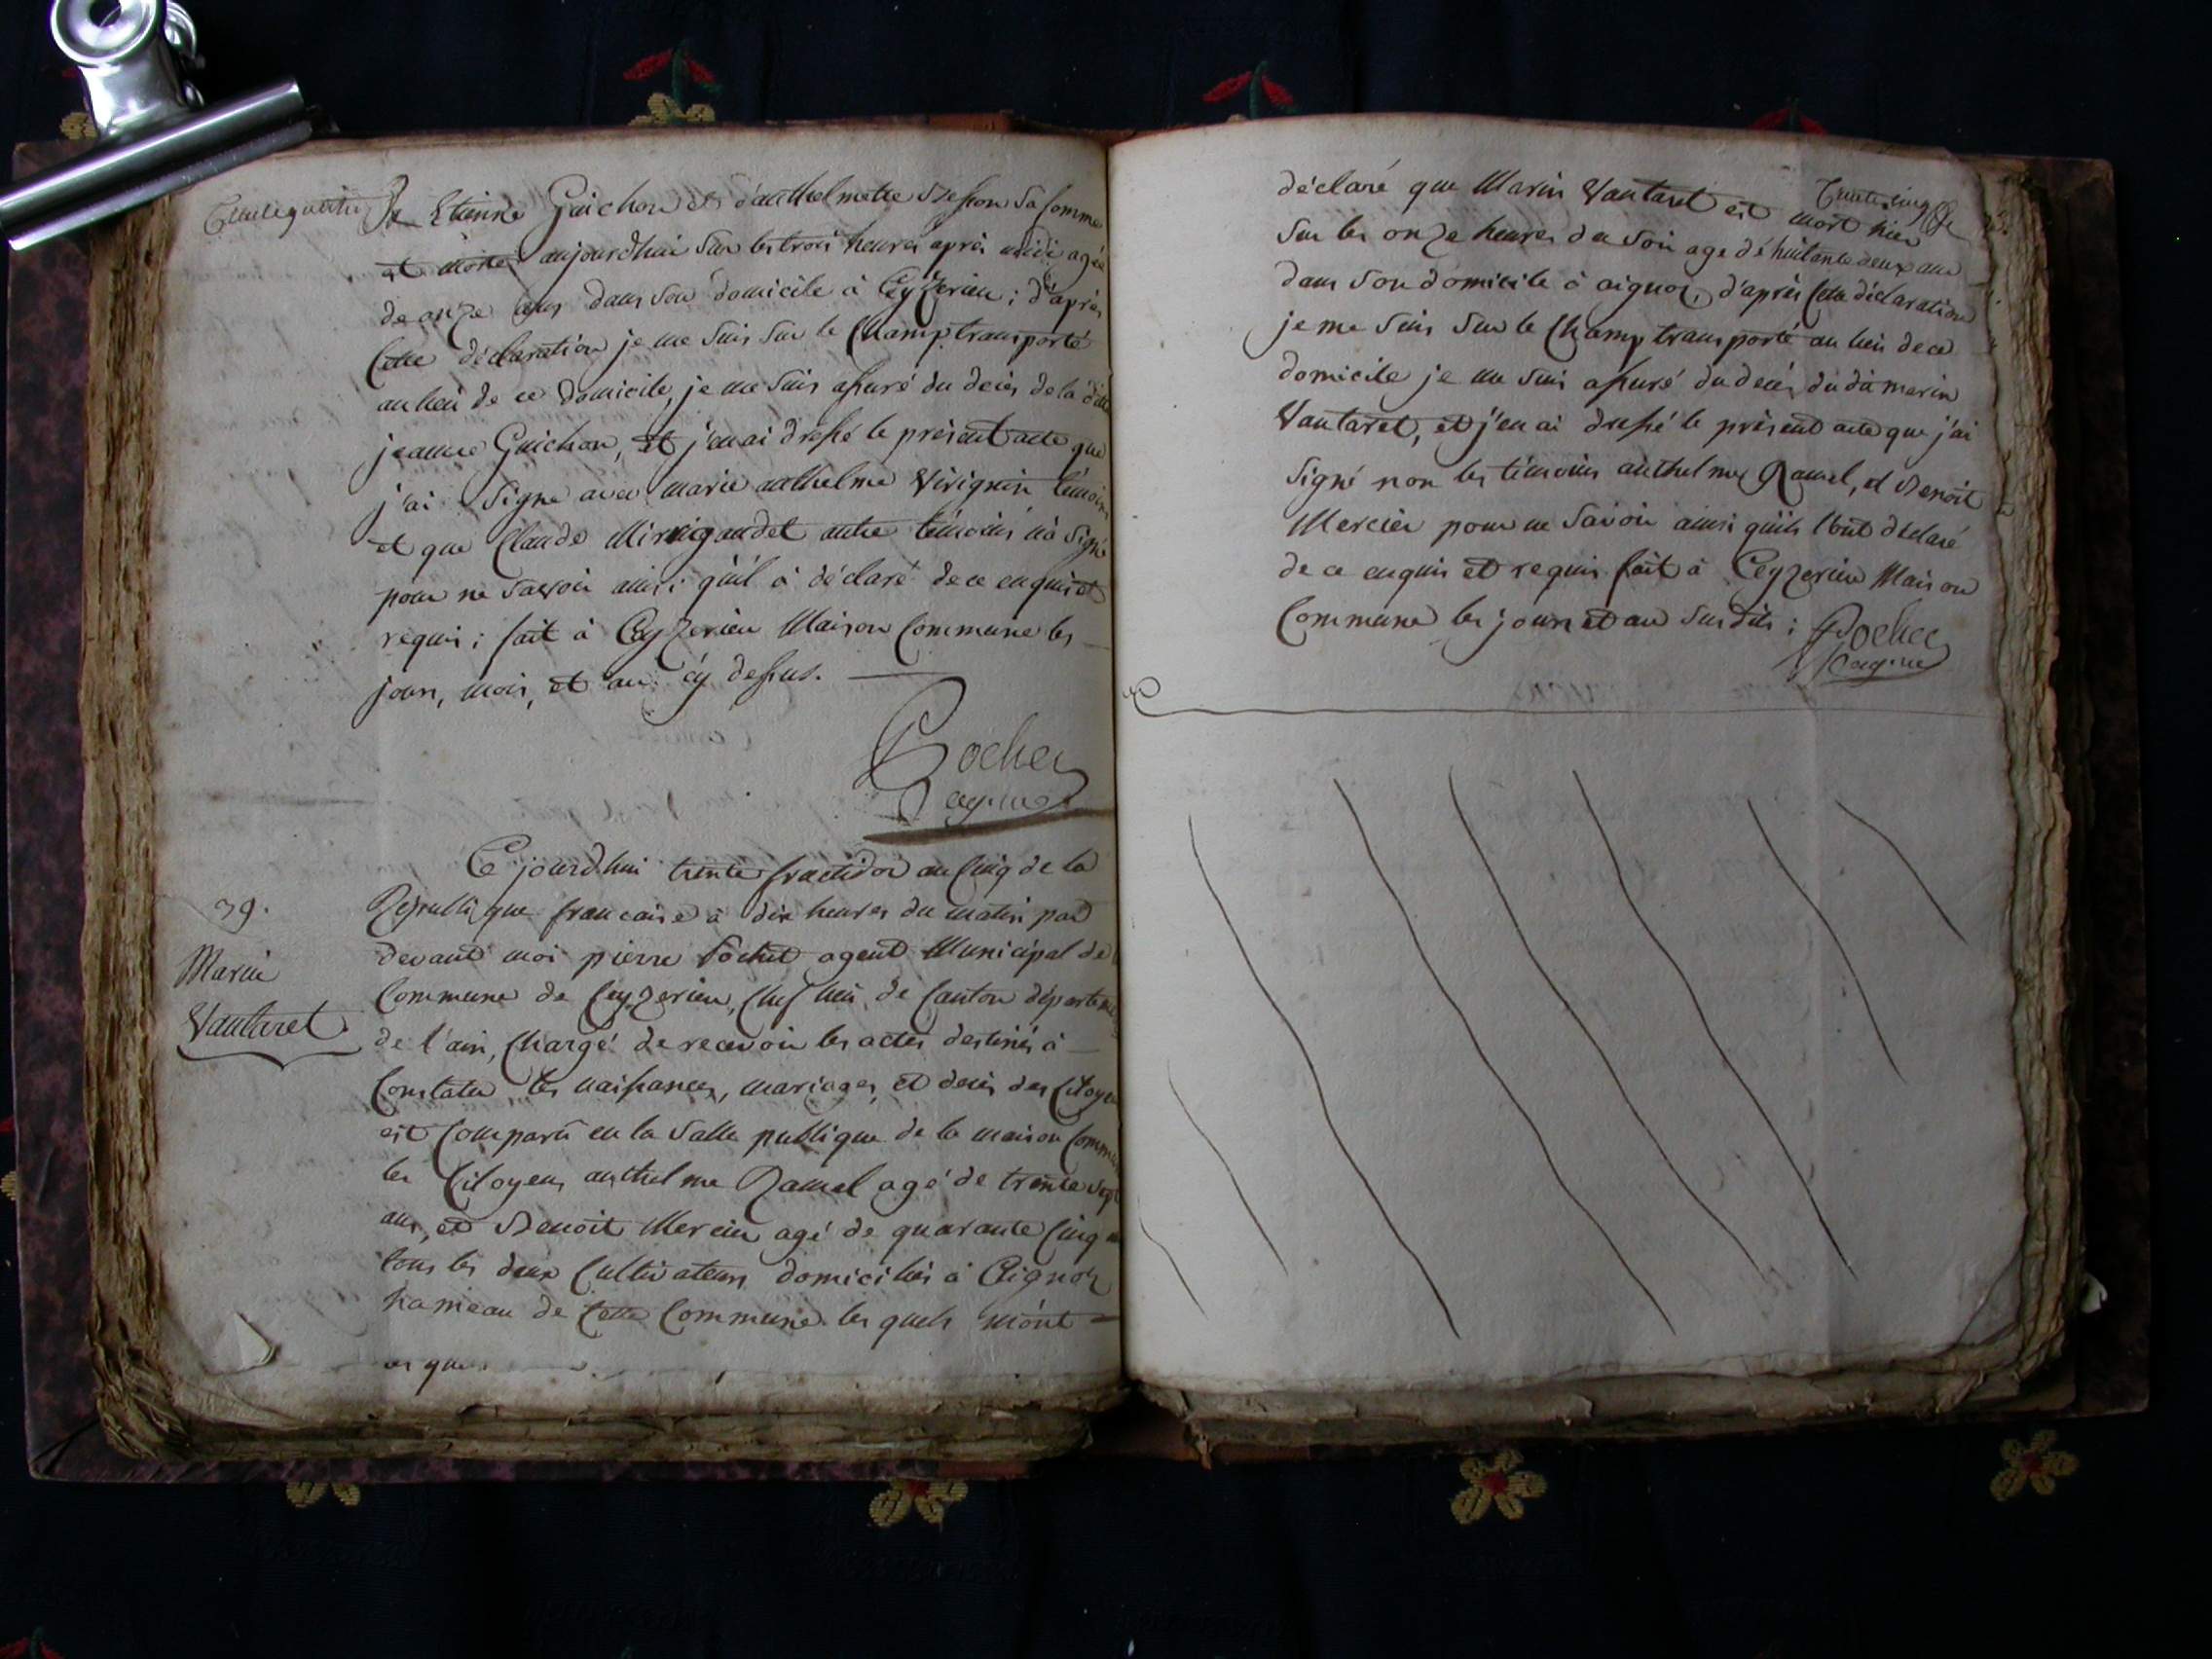 De Etienne Guichon et d'anthelmette sa femme
est morte aujourdhui sur les trois heures après midi agée
de onze ans dans son domicile à Ceyzerieu ; d'après
Cette déclaration je me suis sur le Champ transporté
au lieu de ce domicile, je me suis assuré du decès de la ditte
jeanne Guichon, et j'en ai dressé le présent acte que
j'ai signe avec marie anthelme Virignin témoin
et que Claude Mirrigaudet autre témoins n'a signé
pour ne savoir ainsi qu'il à déclaré de ce enquis et
requis ; fait à Ceyzerieu Maison Commune les
jour, mois, et an cy dessus.
Pochet
agent
Ce jourdhui trente fructidor an Cinq de la
39.
Republique francaise à dix heures du matin par
devant moi pierre Pochet agent Municipal de
Marin
Commune de Ceyzerieu, Chef lieu de Canton départeme
Vautaret
de l'ain, Chargé de recevoir les actes destinés à
Constater les naissances, mariages, et decès des Citoyens
est Comparû en la Salle publique de la maison Commune
les Citoyens anthelme Ramel agé de trente sept
ans, et Benoit Mercier agé de quarante Cinq
tous les deux Cultivateurs domiciliés à Aignoz
hameau de Cette Commune les quels m'ont
déclaré que Marin Vautaret est mort hier
sur les onze heures du soir age de huitante deux ans
dans son domicile à aignoz, d'après Cette déclaration
je me suis sur le Champ transporté au lieu de ce
domicile je me suis assuré du decés du dit marin
Vautaret, et j'en ai dressé le présent acte que j'ai
signé non les témoins anthelme Ramel, et Benoit
Mercier pour ne savoir ainsi qu'ils l'ont déclaré
de ce enquis et requis fait à Ceyzerieu Maison
Commune les jour et an susdits ; Pochet
agent